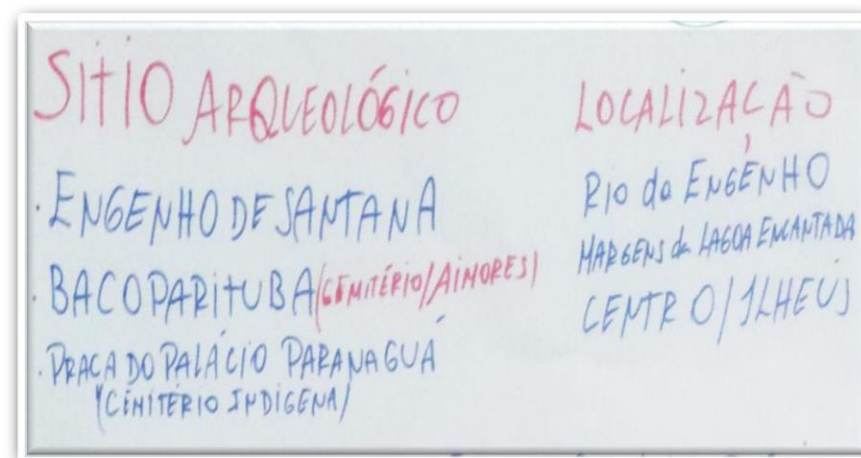 SITIO ARQUEOLÓGICO
· ENGENHO DE SANTANA
· BACOPARITUBA (CEMITÉRIO/AIMORES)
· PRACA DO PALÁCIO PARANAGUÁ
(CEMITÉRIO INDIGENA)
LOCALIZAÇÃO
RIO do ENGENHO
MARGENS da LAGOA ENCANTADA
CENTRO/ILHEUS